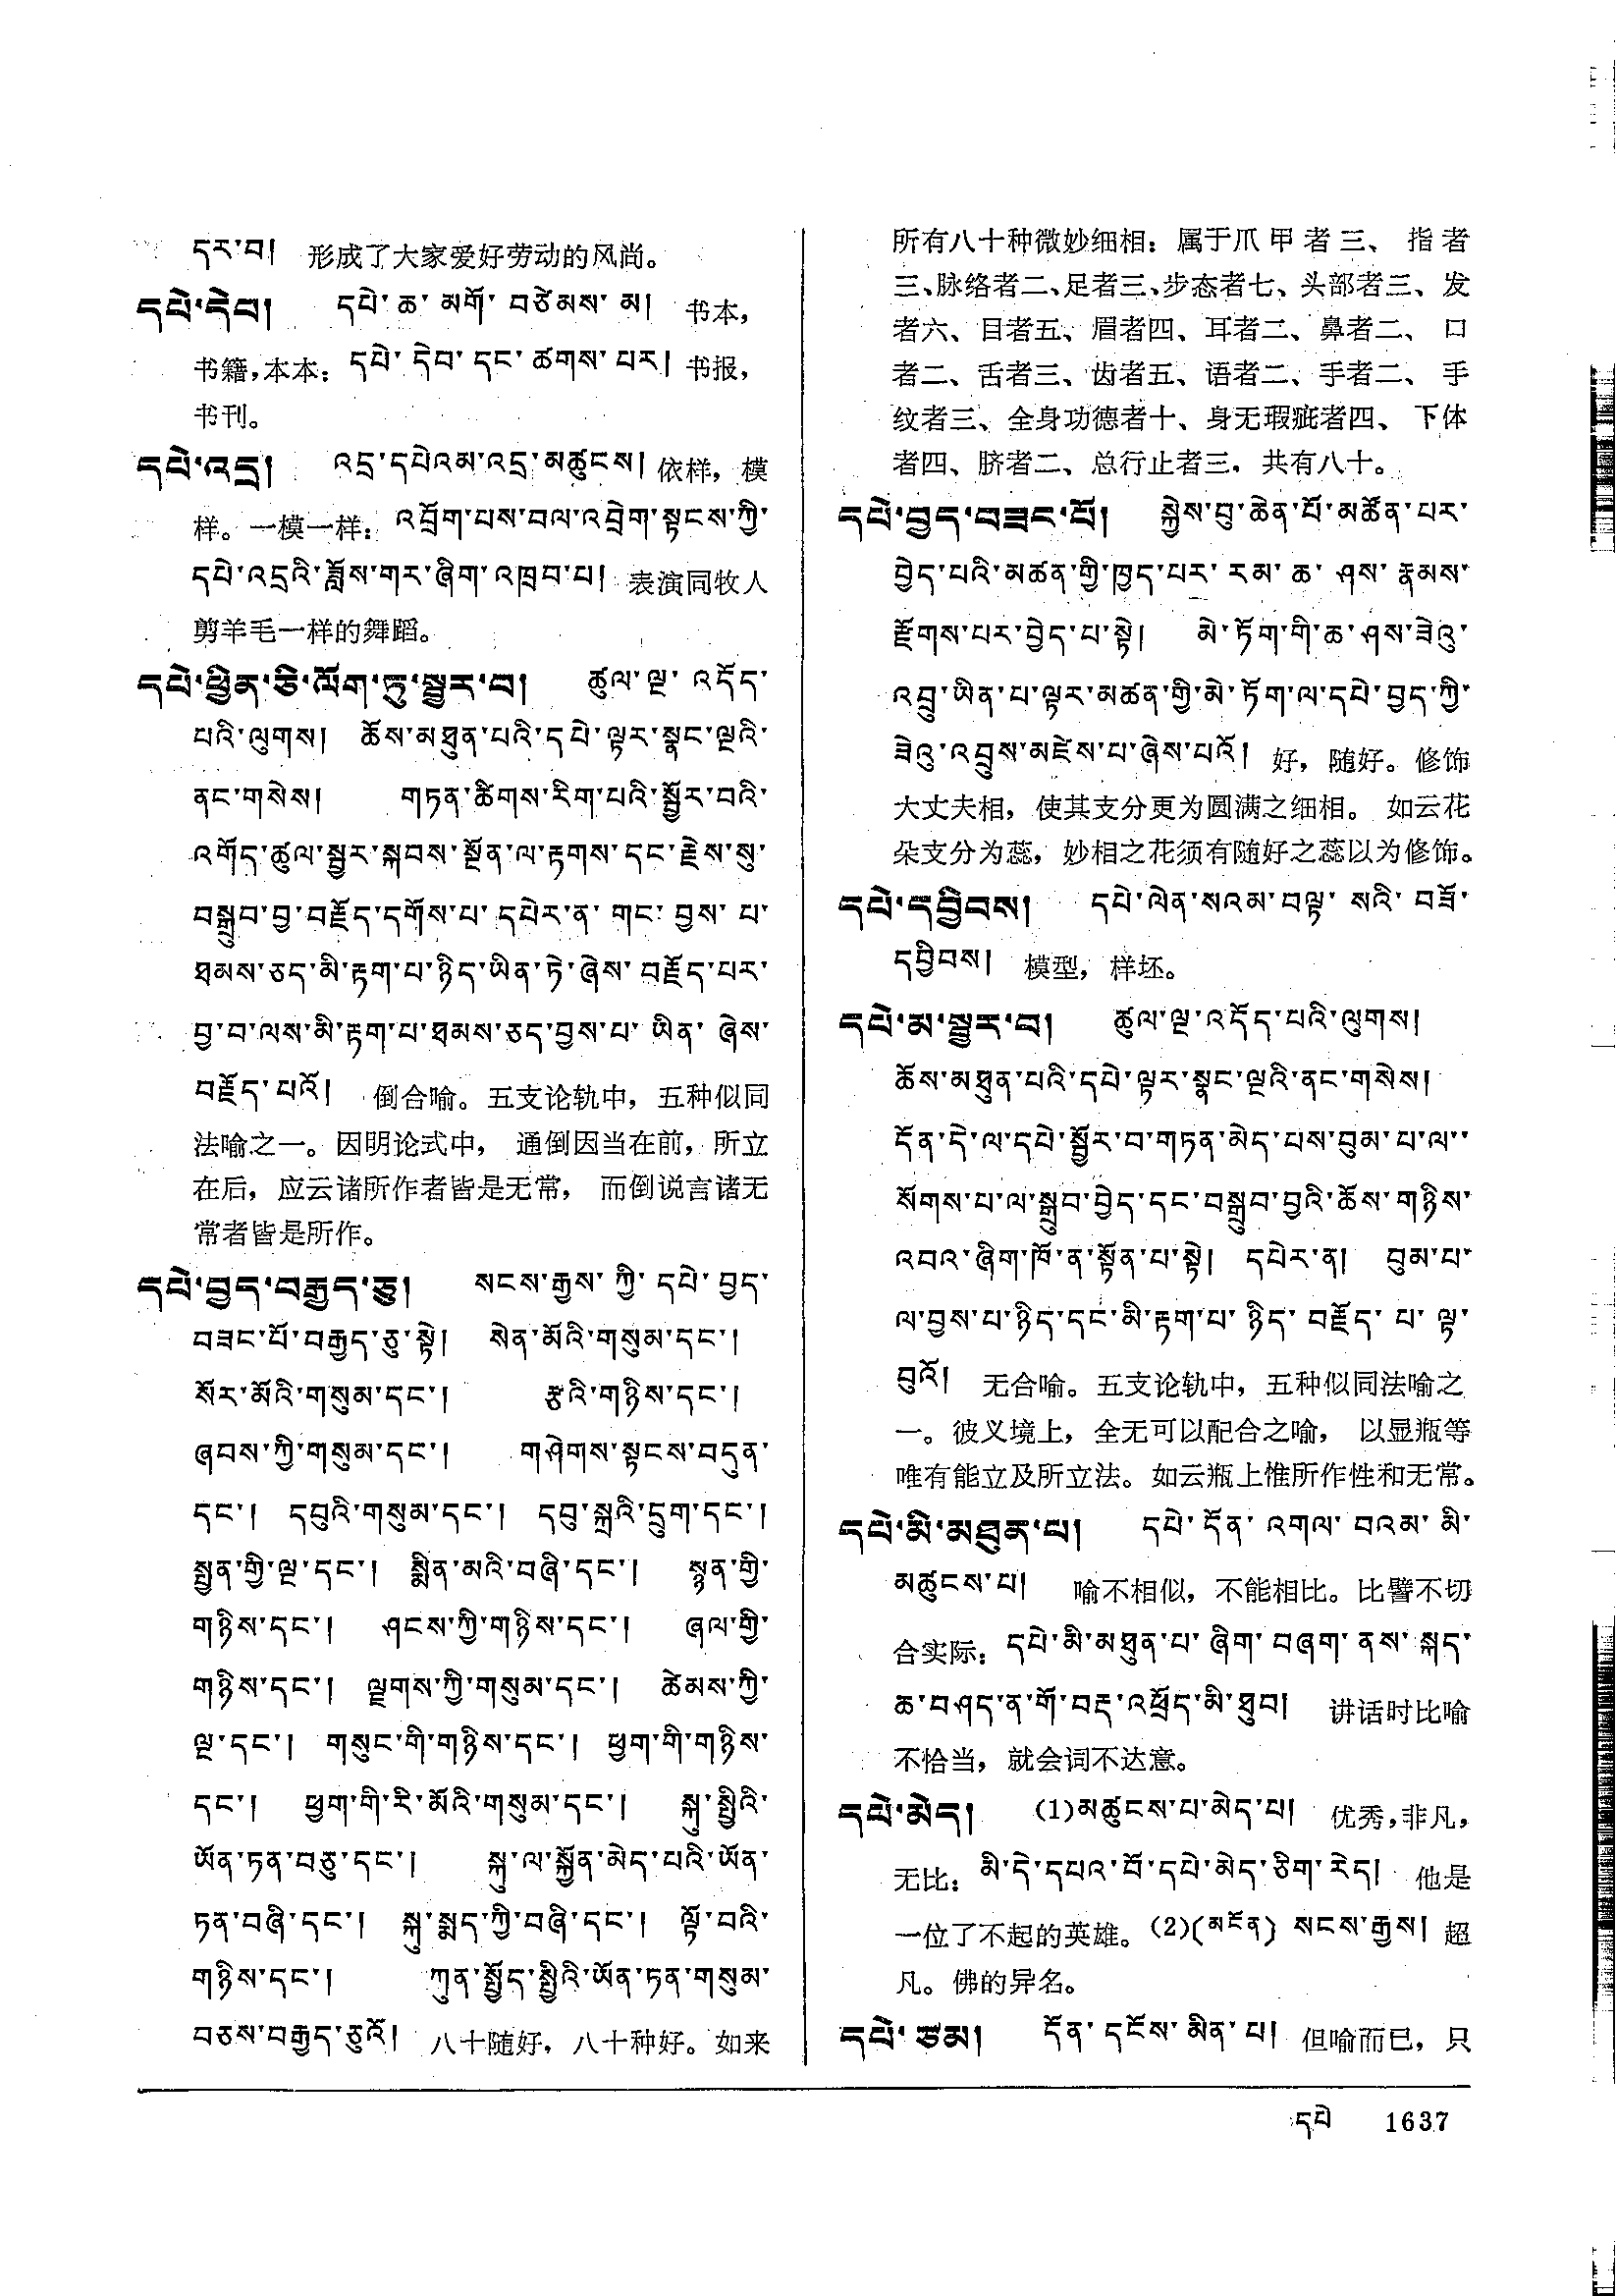 དར་བ། 形成了大家爱好劳动的风尚。
དཔེ་དེབ། དཔེ་ཆ་མགོ་བཙེམས་མ། 书本，
书籍，本本：དཔེ་དེབ་དང་ཚགས་པར། 书报，
书刊。
དཔེ་འདྲ། འདྲ་དཔེའམ་འདྲ་མཚུངས། 依样，模
样。一模一样：འབྲོག་པས་བལ་འབྲེག་སྟངས་ཀྱི་
དཔེ་འདྲའི་ཟློས་གར་ཞིག་འཁྲབ་པ། 表演同牧人
剪羊毛一样的舞蹈。
དཔེ་ཕྱིན་ཅི་ལོག་ཏུ་སྦྱར་བ། ཚུལ་ལྔ་འདོད་
པའི་ལུགས། ཆོས་མཐུན་པའི་དཔེ་ལྟར་སྣང་ལྔའི་
ནང་གསེས། གཏན་ཚིགས་རིག་པའི་སྦྱོར་བའི་
འགོད་ཚུལ་སྦྱར་སྐབས་སྔོན་ལ་རྟགས་དང་རྗེས་སུ་
བསྒྲུབ་བྱ་བརྗོད་དགོས་པ་དཔེར་ན་གང་བྱས་པ་
ཐམས་ཅད་མི་རྟག་པ་ཉིད་ཡིན་ཏེ་ཞེས་བརྗོད་པར་
བྱ་བ་ལས་མི་རྟག་པ་ཐམས་ཅད་བྱས་པ་ཡིན་ཞེས་
བརྗོད་པའོ། 倒合喻。五支论轨中，五种似同
法喻之一。因明论式中，通倒因当在前，所立
在后，应云诸所作者皆是无常，而倒说言诸无
常者皆是所作。
དཔེ་བྱད་བརྒྱད་ཅུ། སངས་རྒྱས་ཀྱི་དཔེ་བྱད་
བཟང་པོ་བརྒྱད་ཅུ་སྟེ། སེན་མོའི་གསུམ་དང་།
སོར་མོའི་གསུམ་དང་། རྩའི་གཉིས་དང་།
ཞབས་ཀྱི་གསུམ་དང་། གཤེགས་སྟངས་བདུན་
དང་། དབུའི་གསུམ་དང་། དབུ་སྐྲའི་དྲུག་དང་།
སྤྱན་གྱི་ལྔ་དང་། སྨིན་མའི་བཞི་དང་། སྙན་གྱི་
གཉིས་དང་། ཤངས་ཀྱི་གཉིས་དང་། ཞལ་གྱི་
གཉིས་དང་། ལྗགས་ཀྱི་གསུམ་དང་། ཚེམས་ཀྱི་
ལྔ་དང་། གསུང་གི་གཉིས་དང་། ཕྱག་གི་གཉིས་
དང་། ཕྱག་གི་རི་མོའི་གསུམ་དང་། སྐུ་སྤྱིའི་
ཡོན་ཏན་བཅུ་དང་། སྐུ་ལ་སྐྱོན་མེད་པའི་ཡོན་
ཏན་བཞི་དང་། སྐུ་སྨད་ཀྱི་བཞི་དང་། ལྟོ་བའི་
གཉིས་དང་། ཀུན་སྤྱོད་སྤྱིའི་ཡོན་ཏན་གསུམ་
བཅས་བརྒྱད་ཅུའོ། 八十随好，八十种好。如来
所有八十种微妙细相：属于爪甲者三、指者
三、脉络者二、足者三、步态者七、头部者三、发
者六、目者五、眉者四、耳者二、鼻者二、口
者二、舌者三、齿者五、语者二、手者二、手
纹者三、全身功德者十、身无瑕疵者四、下体
者四、脐者二、总行止者三，共有八十。
དཔེ་བྱད་བཟང་པོ། སྐྱེས་བུ་ཆེན་པོ་མཚོན་པར་
བྱེད་པའི་མཚན་གྱི་ཁྱད་པར་རམ་ཆ་ཤས་རྣམས་
རྫོགས་པར་བྱེད་པ་སྟེ། མེ་ཏོག་གི་ཆ་ཤས་ཟེའུ་
འབྲུ་ཡིན་པ་ལྟར་མཚན་གྱི་མེ་ཏོག་ལ་དཔེ་བྱད་ཀྱི་
ཟེའུ་འབྲུས་མཛེས་པ་ཞེས་པའོ། 好，随好。修饰
大丈夫相，使其支分更为圆满之细相。如云花
朵支分为蕊，妙相之花须有随好之蕊以为修饰。
དཔེ་དབྱིབས། དཔེ་ལེན་སའམ་བལྟ་སའི་བཟོ་
དབྱིབས། 模型，样坯。
དཔེ་མ་སྦྱར་བ། ཚུལ་ལྔ་འདོད་པའི་ལུགས།
ཆོས་མཐུན་པའི་དཔེ་ལྟར་སྣང་ལྔའི་ནང་གསེས།
དོན་དེ་ལ་དཔེ་སྦྱོར་བ་གཏན་མེད་པས་བུམ་པ་ལ་་
སོགས་པ་ལ་སྒྲུབ་བྱེད་དང་བསྒྲུབ་བྱའི་ཆོས་གཉིས་
འབའ་ཞིག་ཁོ་ན་སྟོན་པ་སྟེ། དཔེར་ན། བུམ་པ་
ལ་བྱས་པ་ཉིད་དང་མི་རྟག་པ་ཉིད་བརྗོད་པ་ལྟ་
བུའོ། 无合喻。五支论轨中，五种似同法喻之
一。彼义境上，全无可以配合之喻，以显瓶等
唯有能立及所立法。如云瓶上惟所作性和无常。
དཔེ་མི་མཐུན་པ། དཔེ་དོན་འགལ་བའམ་མི་
མཚུངས་པ། 喻不相似，不能相比。比譬不切
合实际：དཔེ་མི་མཐུན་པ་ཞིག་བཞག་ནས་སྐད་
ཆ་བཤད་ན་གོ་བརྡ་འཕྲོད་མི་ཐུབ། 讲话时比喻
不恰当，就会词不达意。
དཔེ་མེད། (1)མཚུངས་པ་མེད་པ། 优秀，非凡，
无比：མི་དེ་དཔའ་བོ་དཔེ་མེད་ཅིག་རེད། 他是
一位了不起的英雄。(2)(མངོན) སངས་རྒྱས། 超
凡。佛的异名。
དཔེ་ཙམ། དོན་དངོས་མིན་པ། 但喻而已，只
དཔེ 1637